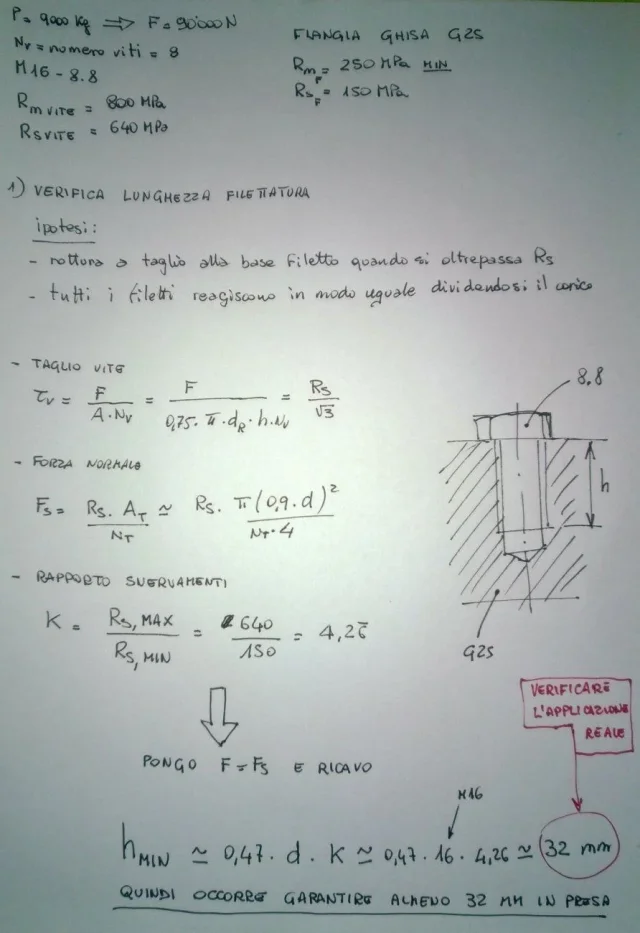 P = 9000 Kg ⇒ F = 90'000 N
Nv = numero viti = 8
M16 - 8.8
Rm VITE = 800 MPa
Rs VITE = 640 MPa
FLANGIA GHISA G25
Rm F = 250 MPa MIN
Rs F = 150 MPa
1) VERIFICA LUNGHEZZA FILETTATURA
ipotesi:
- rottura a taglio alla base filetto quando si oltrepassa Rs
- tutti i filetti reagiscono in modo uguale dividendosi il carico
- TAGLIO VITE
τv = F / A · Nv = F / 0,75 · π · dR · h · Nv = Rs / √3
- FORZA NORMALE
Fs = Rs · AT / NT ≃ Rs · π (0,9 · d)² / NT · 4
- RAPPORTO SNERVAMENTI
K = Rs, MAX / Rs, MIN = 640 / 150 = 4,26̅
8.8
h
G25
PONGO F = Fs E RICAVO
VERIFICARE
L'APPLICAZIONE
REALE
M16
hMIN ≃ 0,47 · d · K ≃ 0,47 · 16 · 4,26 ≃ 32 mm
QUINDI OCCORRE GARANTIRE ALMENO 32 MM IN PRESA